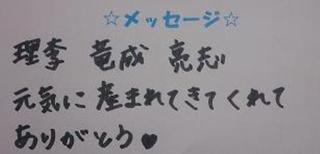 ☆メッセージ☆
理李 竜成 亮志
元気に産まれてきてくれて
ありがとう♥